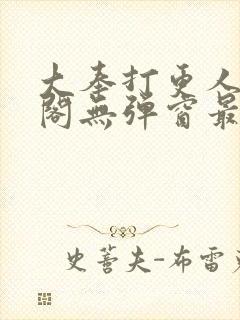 大奉打更人
閣無彈窗最
史蒂夫-布雷